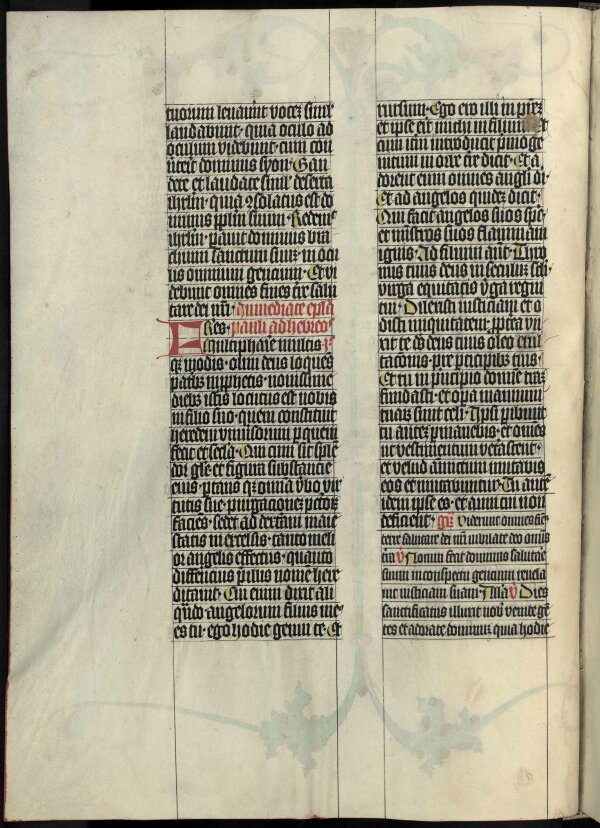 tuorum leuauut voces simul
laudabunt · quia oculo ad
oculum videbunt · cum con
uerterit dominus syon · Gau
dete et laudate simul deserta
ihrlm · quia ꝯsolatus est do
minus pplm suum · Redemit
ihrlm · parauit dominus bra
chium sanctum suum in ocu
lis omnium gencium · Et vi
debunt omnes fines terre salu
tare dei nri · Immediate epla
Fres · pauli ad hebreos
Multipharie multis
qꝫ modis · olim deus loquens
patribꝫ in pphetis · nouissime
diebꝫ istis locutus est nobis
in filio suo · quem constituit
heredem vniuersorum per quem
fecit et secla · Qui cum sit splen
dor glie et figura substancie
eius · portans qꝫ omnia vbo vir
tutis sue · purgacionem pctorꝫ
faciens · sedet ad dexteram maie
statis in excelsis · tanto meli
or angelis effectus · quanto
differencius pre illis nomen here
ditauit · Cui enim dixit ali
quando angelorum filius me
es tu · ego hodie genui te · Et
rursum · Ego ero illi in patrem
et ipse erit michi in filium · Et
cum iterum introducit primoge
nitum in orbem terre dicit · Et a
dorent eum omnes angeli di ·
Et ad angelos quidem dicit ·
Qui facit angelos suos spc
et ministros suos flammam
ignis · Ad filium autem · Thro
nus tuus deus in seculum scli
virga equitatis virga regni
tui · Dilexisti iusticiam et o
disti iniquitatem · propterea vn
xit te deus deus tuus oleo exul
tacionis · pre participibꝫ tuis ·
Et tu in principio domine terram
fundasti · et opera manuum
tuarꝫ sunt celi · Ipsi peribunt
tu autem permanebis · et omnes
ut vestimentum veterascent ·
et velud amictum mutabis
eos et mutabuntur · Tu autem
idem ipse es · et anni tui non
deficient · Gr Viderunt omnes fines
terre salutare dei nri iubilate deo omnis
terra V Notum fecit dominus salutare
suum in conspectu gencium reuela
uit iusticiam suam Alla V Dies
sanctificatus illuxit nobis venite gen
tes et adorate dominum quia hodie